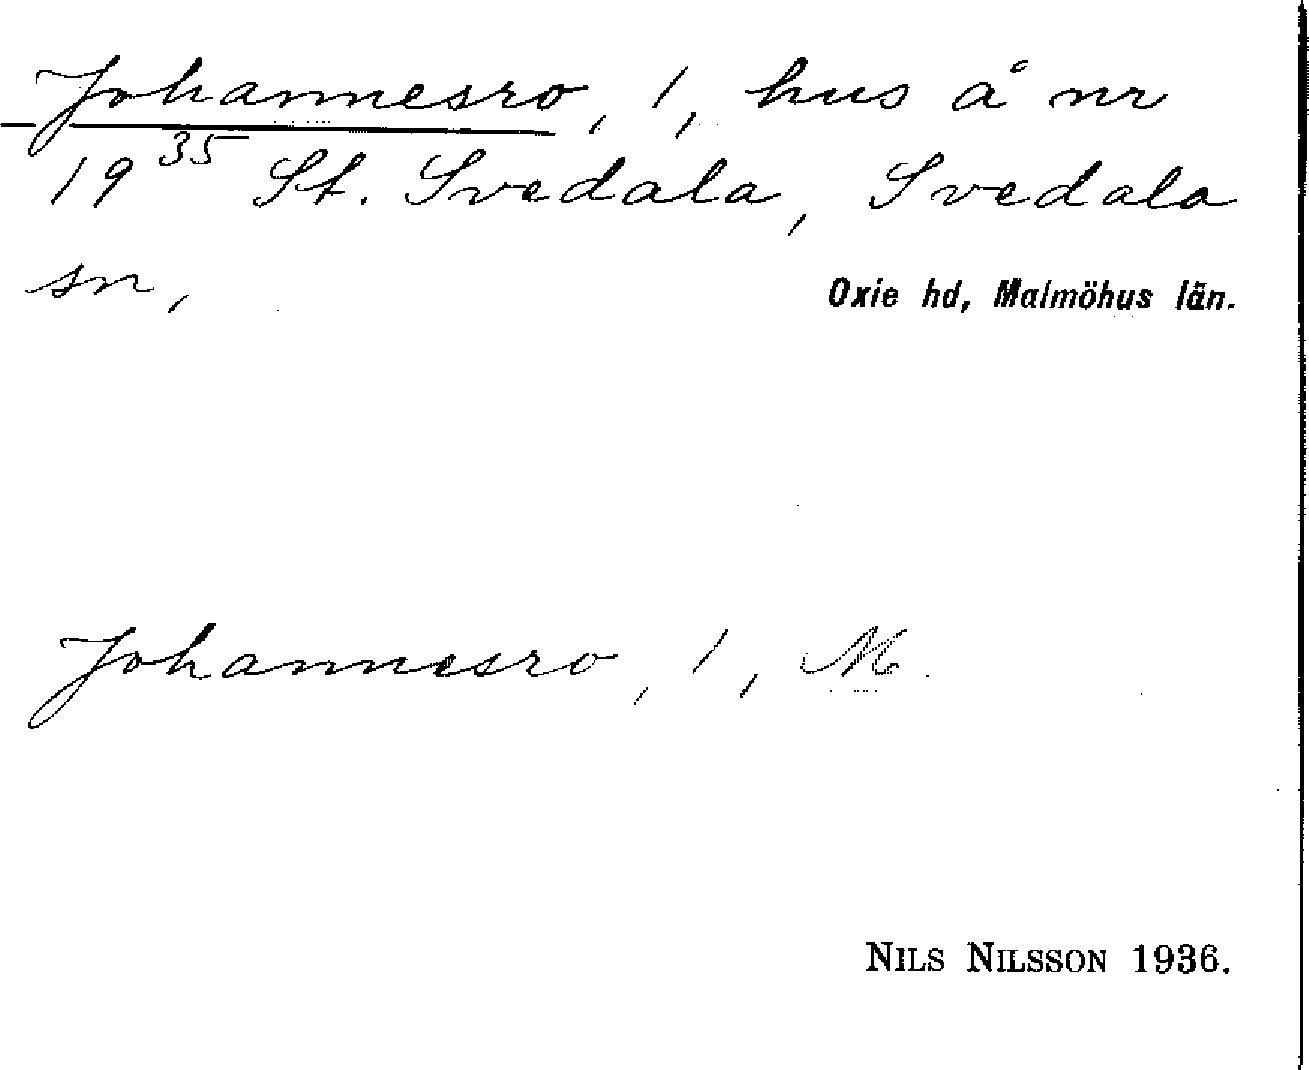 Johannesro, 1, hus å nr
19³⁵ St. Svedala, Svedala
sn,
Oxie hd, Malmöhus län.
Johannesro, 1, M.
NILS NILSSON 1936.